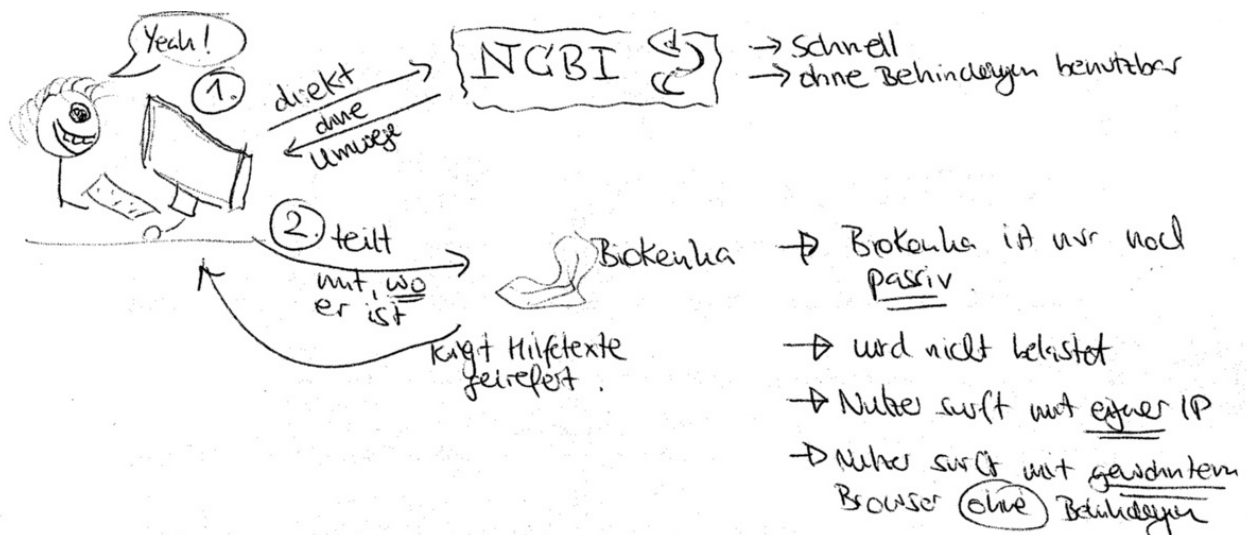 Yeah!
1.
direkt
ohne
Umwege
NCBI
→ Schnell
→ ohne Behinderungen benutzbar
2. teilt
mit, wo
er ist
Biokenha
kriegt Hilfetexte
geliefert.
→ Biokenha ist nur noch
passiv.
→ wird nicht belastet
→ Nutzer surft mit eigner IP
→ Nutzer surft mit gewohntem
Browser ohne Behinderungen